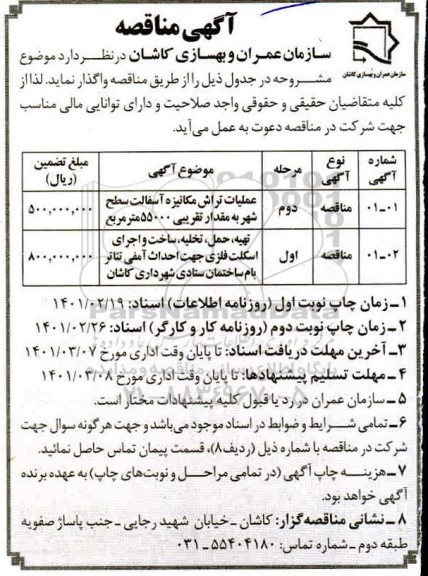 آگهی مناقصه
سازمان عمران و بهسازی کاشان
سازمان عمران و بهسازی کاشان در نظر دارد موضوع
مشروحه در جدول ذیل را از طریق مناقصه واگذار نماید. لذا از
کلیه متقاضیان حقیقی و حقوقی واجد صلاحیت و دارای توانایی مالی مناسب
جهت شرکت در مناقصه دعوت به عمل می‌آید.
شماره آگهی | نوع آگهی | مرحله | موضوع آگهی | مبلغ تضمین (ریال)
۰۱-۰۱ | مناقصه | دوم | عملیات تراش مکانیزه آسفالت سطح شهر به مقدار تقریبی ۵۵۰۰۰ مترمربع | ۵۰۰,۰۰۰,۰۰۰
۰۱-۰۲ | مناقصه | اول | تهیه، حمل، تخلیه، ساخت و اجرای اسکلت فلزی جهت احداث آمفی تئاتر بام ساختمان ستادی شهرداری کاشان | ۸۰۰,۰۰۰,۰۰۰
۱ـ زمان چاپ نوبت اول (روزنامه اطلاعات) اسناد: ۱۴۰۱/۰۲/۱۹
۲ـ زمان چاپ نوبت دوم (روزنامه کار و کارگر) اسناد: ۱۴۰۱/۰۲/۲۶
۳ـ آخرین مهلت دریافت اسناد: تا پایان وقت اداری مورخ ۱۴۰۱/۰۳/۰۷
۴ـ مهلت تسلیم پیشنهادها: تا پایان وقت اداری مورخ ۱۴۰۱/۰۳/۰۸
۵ـ سازمان عمران در رد یا قبول کلیه پیشنهادات مختار است.
۶ـ تمامی شرایط و ضوابط در اسناد موجود می‌باشد و جهت هرگونه سوال جهت
شرکت در مناقصه با شماره ذیل (ردیف۸)، قسمت پیمان تماس حاصل نمائید.
۷ـ هزینه چاپ آگهی (در تمامی مراحل و نوبت‌های چاپ) به عهده برنده
آگهی خواهد بود.
۸ـ نشانی مناقصه‌گزار: کاشان ـ خیابان شهید رجایی ـ جنب پاساژ صفویه
طبقه دوم ـ شماره تماس: ۵۵۴۰۴۱۸۰ـ۰۳۱
ParsNamadData